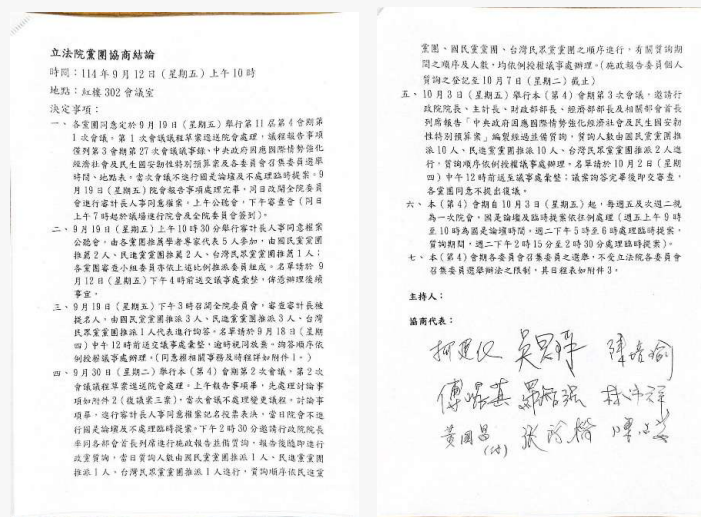 立法院黨團協商結論
時間：114年9月12日（星期五）上午10時
地點：紅樓302會議室
決定事項：
一、各黨團同意定於9月19日（星期五）舉行第11屆第4會期第
1次會議，第1次會議議程草案逕送院會處理，議程報告事項
僅列第3會期第27次會議議事錄、中央政府因應國際情勢強化
經濟社會及民生國安韌性特別預算案及各委員會召集委員選舉
時間、地點表。當次會議不進行國是論壇及不處理臨時提案。9
月19日（星期五）院會報告事項處理完畢，同日改開全院委員
會進行審計長人事同意權案，上午公聽會，下午審查會（同日
上午7時起於議場進行院會及全院委員會簽到）。
二、9月19日（星期五）上午10時30分舉行審計長人事同意權案
公聽會，由各黨團推薦學者專家代表5人參加，由國民黨黨團
推薦2人、民進黨黨團推薦2人、台灣民眾黨黨團推薦1人；
各黨團審查小組委員亦依上述比例推派委員組成。名單請於9
月12日（星期五）下午4時前送交議事處彙整，俾憑辦理後續
事宜。
三、9月19日（星期五）下午3時召開全院委員會，審查審計長被
提名人，由國民黨黨團推派3人、民進黨黨團推派3人、台灣
民眾黨黨團推派1人代表進行詢答。名單請於9月18日（星期
四）中午12時前送交議事處彙整，逾時視同放棄。詢答順序依
例授權議事處辦理。（同意權相關事務及時程詳如附件1。）
四、9月30日（星期二）舉行本（第4）會期第2次會議，第2次
會議議程草案逕送院會處理。上午報告事項畢，先處理討論事
項如附件2（復議案三案），當次會議不處理變更議程。討論事
項畢，進行審計長人事同意權案記名投票表決，當日院會不進
行國是論壇及不處理臨時提案。下午2時30分邀請行政院院長
率同各部會首長列席進行施政報告並備質詢，報告後隨即進行
政黨質詢，當日質詢人數由國民黨黨團推派1人、民進黨黨團
推派1人、台灣民眾黨黨團推派1人進行，質詢順序依民進黨
黨團、國民黨黨團、台灣民眾黨黨團之順序進行，有關質詢期
間之順序及人數，均依例授權議事處辦理。（施政報告委員個人
質詢之登記至10月7日（星期二）截止）
五、10月3日（星期五）舉行本（第4）會期第3次會議，邀請行
政院院長、主計長、財政部部長、經濟部部長及相關部會首長
列席報告「中央政府因應國際情勢強化經濟社會及民生國安韌
性特別預算案」編製經過並備質詢，質詢人數由國民黨黨團推
派10人、民進黨黨團推派10人、台灣民眾黨黨團推派2人進
行，質詢順序依例授權議事處辦理。名單請於10月2日（星期
四）中午12時前送至議事處彙整；議案詢答完畢後即交審查，
各黨團同意不提出復議。
六、本（第4）會期自10月3日（星期五）起，每週五及次週二視
為一次院會，國是論壇及臨時提案依往例處理（週五上午9時
至10時為國是論壇時間，週二下午5時至6時處理臨時提案，
質詢期間，週二下午2時15分至2時30分處理臨時提案）。
七、本（第4）會期各委員會召集委員之選舉，不受立法院各委員會
召集委員選舉辦法之限制，其日程表如附件3。
主持人：
協商代表：
柯建銘 吳思瑤 陳培瑜
傅崐萁 羅智強 林沛祥
黃國昌 張啓楷